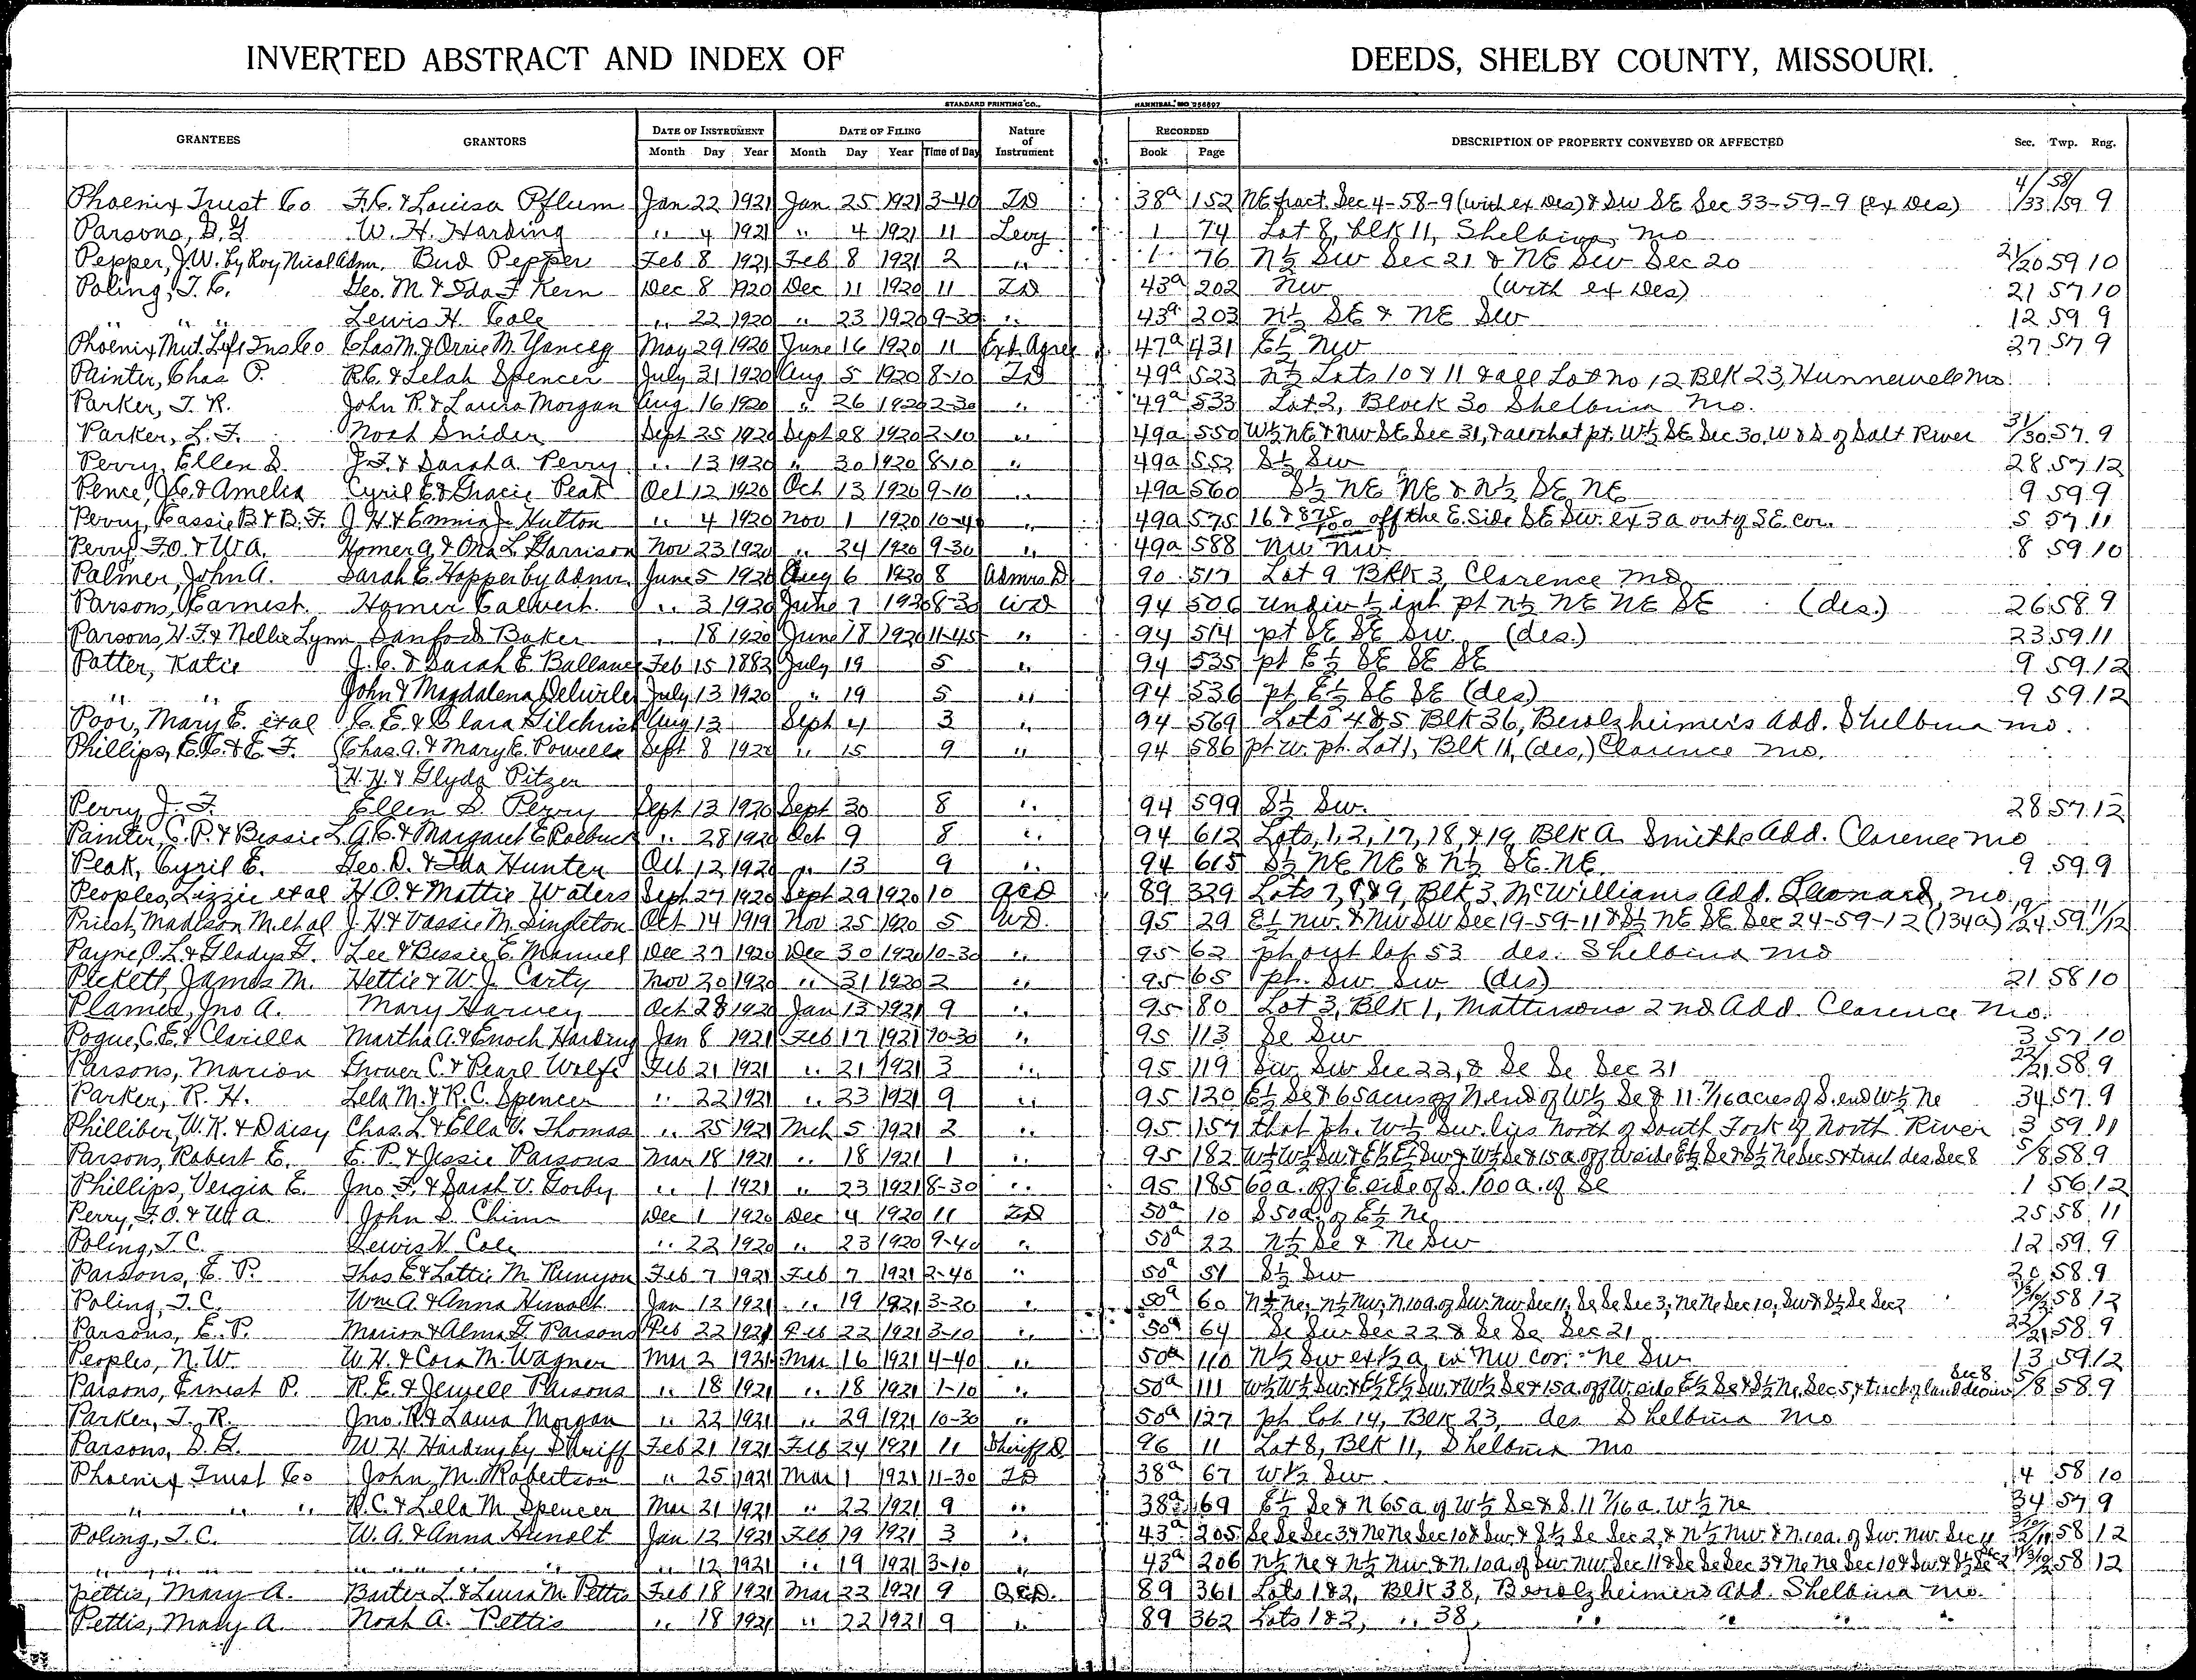 INVERTED ABSTRACT AND INDEX OF DEEDS, SHELBY COUNTY, MISSOURI.
STANDARD PRINTING CO., HANNIBAL, MO 256897
GRANTEES GRANTORS DATE OF INSTRUMENT DATE OF FILING Nature of Instrument RECORDED DESCRIPTION OF PROPERTY CONVEYED OR AFFECTED Sec. Twp. Rng.
Month Day Year Month Day Year Time of Day Book Page
Phoenix Trust Co F.C. & Louisa Pflum Jan 22 1921 Jan 25 1921 3-40 TD 38a 152 NE fract. Sec 4-58-9 (with ex Des) & SW SE Sec 33-59-9 (ex Des) 4/33 58/59 9
Parsons, D.G. W. H. Harding " 4 1921 " 4 1921 11 Levy 1 74 Lot 8, blk 11, Shelbina, Mo
Pepper, J.W. by Roy Nicol Adm. Bud Pepper Feb 8 1921 Feb 8 1921 2 " 1 76 N½ SW Sec 21 & NE SW Sec 20 21/20 59 10
Poling, T.C. Geo. M. & Ida F Kern Dec 8 1920 Dec 11 1920 11 TD 43a 202 NW (with ex Des) 21 57 10
" " Lewis H. Cole " 22 1920 " 23 1920 9-30 " 43a 203 N½ SE & NE SW 12 59 9
Phoenix Mut Life Ins Co Chas M. & Orrie M. Yancey May 29 1920 June 16 1920 11 Ext. Agree 47a 431 E½ NW 27 57 9
Painter, Chas P. R.C. & Lelah Spencer July 31 1920 Aug 5 1920 8-10 TD 49a 523 N½ Lots 10 & 11 & all Lot no 12 Blk 23, Hunnewell Mo.
Parker, T. R. John R. & Laura Morgan Aug 16 1920 " 26 1920 2-30 " 49a 533 Lot 2, Block 30 Shelbina Mo.
Parker, L. F. Noah Snider Sept 25 1920 Sept 28 1920 2-10 " 49a 550 W½ NE & NW SE Sec 31, & all that pt. W½ SE Sec 30, W & S of Salt River 31/30 57 9
Perry, Ellen S. J.F. & Sarah A. Perry " 13 1920 " 30 1920 8-10 " 49a 552 S½ SW 28 57 12
Pence, J.C. & Amelia Cyril E. & Gracie Peak Oct 12 1920 Oct 13 1920 9-10 " 49a 560 S½ NE NE & N½ SE NE 9 59 9
Perry, Cassie B & B.F. J. H. & Emma J. Hulton " 4 1920 Nov 1 1920 10-40 " 49a 575 16 & 875/100 off the E. Side SE SW. ex 3 a out of SE cor. 5 57 11
Perry, F.O. & W.A. Homer G. & Ona L Garrison Nov 23 1920 " 24 1920 9-30 " 49a 588 NW NW 8 59 10
Palmer, John A. Sarah E. Hopper by Admr. June 5 1920 Aug 6 1920 8 Admrs D 90 517 Lot 9 Blk 3, Clarence Mo
Parsons, Earnest Homer Calvert " 3 1920 June 7 1920 8-30 WD 94 506 undiv ½ int pt N½ NE NE SE (des.) 26 58 9
Parsons, H.F. & Nellie Lynn Sanford Baker " 18 1920 June 18 1920 11-45 " 94 514 pt SE SE SW. (des.) 23 59 11
Patter, Katie J. C. & Sarah E. Ballance Feb 15 1883 July 19 5 " 94 535 pt E½ SE SE SE 9 59 12
" " John & Magdalena July 13 1920 " 19 5 " 94 536 pt E½ SE SE (des) 9 59 12
Poor, Mary E. et al C. E. & Clara Gilchrist Aug 13 Sept 4 3 " 94 569 Lots 4 & 5 Blk 36, Berolzheimers Add. Shelbina Mo.
Phillips, E.C. & E.F. Chas. A. & Mary E. Powella Sept 8 1920 " 15 9 " 94 586 pt w. pt. Lot 1, Blk 11, (des,) Clarence Mo.
H. H. & Glyda Pitzer
Perry J. F. Ellen S. Perry Sept 13 1920 Sept 30 8 " 94 599 S½ SW. 28 57 12
Painter, C. P. & Bessie L A.C. & Margaret E Roebuck " 28 1920 Oct 9 8 " 94 612 Lots, 1, 2, 17, 18, & 19, Blk A Smiths Add. Clarence Mo
Peak, Cyril E. Geo. D. & Ida Hunter Oct 12 1920 " 13 9 " 94 615 S½ NE NE & N½ SE. NE. 9 59 9
Peoples, Lizzie et al H.O. & Mattie Waters Sept 27 1920 Sept 29 1920 10 QCD 89 329 Lots 7, 8 & 9, Blk 3, McWilliams Add. Leonard, Mo
Priest, Madison M. et al J. H. & Vassie M. Singleton Oct 14 1919 Nov 25 1920 5 WD. 95 29 E½ NW. & NW SW Sec 19-59-11 & S½ NE SE Sec 24-59-12 (134a) 19/24 59 11/12
Payne, O.L. & Gladys G. Lee & Bessie E. Manuel Dec 27 1920 Dec 30 1920 10-30 " 95 62 pt out lot 53 des. Shelbina Mo
Pickett, James M. Hettie & W. J. Carty Nov 20 1920 " 31 1920 2 " 95 65 pt. SW. SW (des) 21 58 10
Jno A. Mary Harvey Oct 28 1920 Jan 13 1921 9 " 95 80 Lot 3, Blk 1, Mattersons 2nd Add. Clarence Mo.
Pogue, C.E. & Clarilla Martha A. & Enoch Harding Jan 8 1921 Feb 17 1921 10-30 " 95 113 Se Sw 3 57 10
Parsons, Marion Grover C. & Pearl Wolfe Feb 21 1921 " 21 1921 3 " 95 119 Sw Sw Sec 22, & Se Se Sec 21 22/21 58 9
Parker, R. H. Lela M. & R. C. Spencer " 22 1921 " 23 1921 9 " 95 120 E½ Se & 65 acres of N end of W½ Se & 11 7/16 acres of S. end W½ Ne 34 57 9
Philliber, W.R. & Daisy Chas. L. & Ella V. Thomas " 25 1921 Mch 5 1921 2 " 95 157 that pt. W½ Sw. lies North of South Fork of North River 3 59 11
Parsons, Robert E. E. P. & Jessie Parsons Mar 18 1921 " 18 1921 1 " 95 182 W½ W½ Sw & E½ E½ Sw & W½ Se & 15 a. off W side E½ Se & S½ Ne Sec 5 & tract des. Sec 8 5/8 58 9
Phillips, Vergia E. Jno. F. & Sarah V. Gorby " 1 1921 " 23 1921 8-30 " 95 185 60 a. off E. side of S. 100 a. of Se 1 56 12
Perry, F.O. & W.A. John S. Chinn Dec 1 1920 Dec 4 1920 11 TD 50a 10 S 50 a. of E½ Ne 25 58 11
Poling, T.C. Lewis H. Cole " 22 1920 " 23 1920 9-40 " 50a 22 N½ Se & Ne Sw 12 59 9
Parsons, E. P. Thos E & Lottie M Runyon Feb 7 1921 Feb 7 1921 2-40 " 50a 51 S½ Sw 20 58 9
Poling, T.C. Wm A. & Anna Hunolt Jan 12 1921 " 19 1921 3-20 " 50a 60 N½ Ne, N½ Nw, N 10 a. of Sw. Nw Sec 11, Se Se Sec 3, Ne Ne Sec 10, Sw & S½ Se Sec 2 58 12
Parsons, E. P. Marion & Alma G. Parsons Feb 22 1921 Feb 22 1921 3-10 " 50a 64 Se Sw Sec 22 & Se Se Sec 21 22/21 58 9
Peoples, N. W. W. H. & Cora M. Wagner Mar 2 1921 Mar 16 1921 4-40 " 50a 110 N½ Sw ex ½ a. in NW cor. Ne Sw 13 59 12
Parsons, Ernest P. R. E. & Jewell Parsons " 18 1921 " 18 1921 1-10 " 50a 111 W½ W½ Sw. & E½ E½ Sw. & W½ Se & 15 a. off W. side E½ Se & S½ Ne, Sec 5, & tract of land des in Sec 8 5/8 58 9
Parker, T. R. Jno. R & Laura Morgan " 22 1921 " 29 1921 10-30 " 50a 127 pt Lot 14, Blk 23, des Shelbina Mo
Parsons, D. G. W H. Harding by Sheriff Feb 21 1921 Feb 24 1921 11 Sheriffs D. 96 11 Lot 8, Blk 11, Shelbina Mo
Phoenix Trust Co John M. Robertson " 25 1921 Mar 1 1921 11-30 TD 38a 67 W½ Sw 4 58 10
" " " R.C. & Lella M Spencer Mar 21 1921 " 22 1921 9 " 38a 169 E½ Se & N 65 a of W½ Se & S. 11 7/16 a. W½ Ne 34 57 9
Poling, T.C. W. A. & Anna Hunolt Jan 12 1921 Feb 19 1921 3 " 43a 205 Se Se Sec 3 & Ne Ne Sec 10 & Sw. & S½ Se Sec 2, & N½ Nw. & N. 10 a. of Sw. Nw. Sec 11 58 12
" " " " " 12 1921 " 19 1921 3-10 " 43a 206 N½ Ne & N½ Nw & N. 10 a. of Sw. Nw Sec 11 & Se Se Sec 3 & Ne Ne Sec 10 & Sw & S½ Se 2 58 12
Pettis, Mary A. Barter L. & Laura M. Pettis Feb 18 1921 Mar 22 1921 9 Q.C.D. 89 361 Lots 1 & 2, Blk 38, Berolzheimers Add. Shelbina Mo.
Pettis, Mary A. Noah A. Pettis " 18 1921 " 22 1921 9 " 89 362 Lots 1 & 2, " 38, " " " "